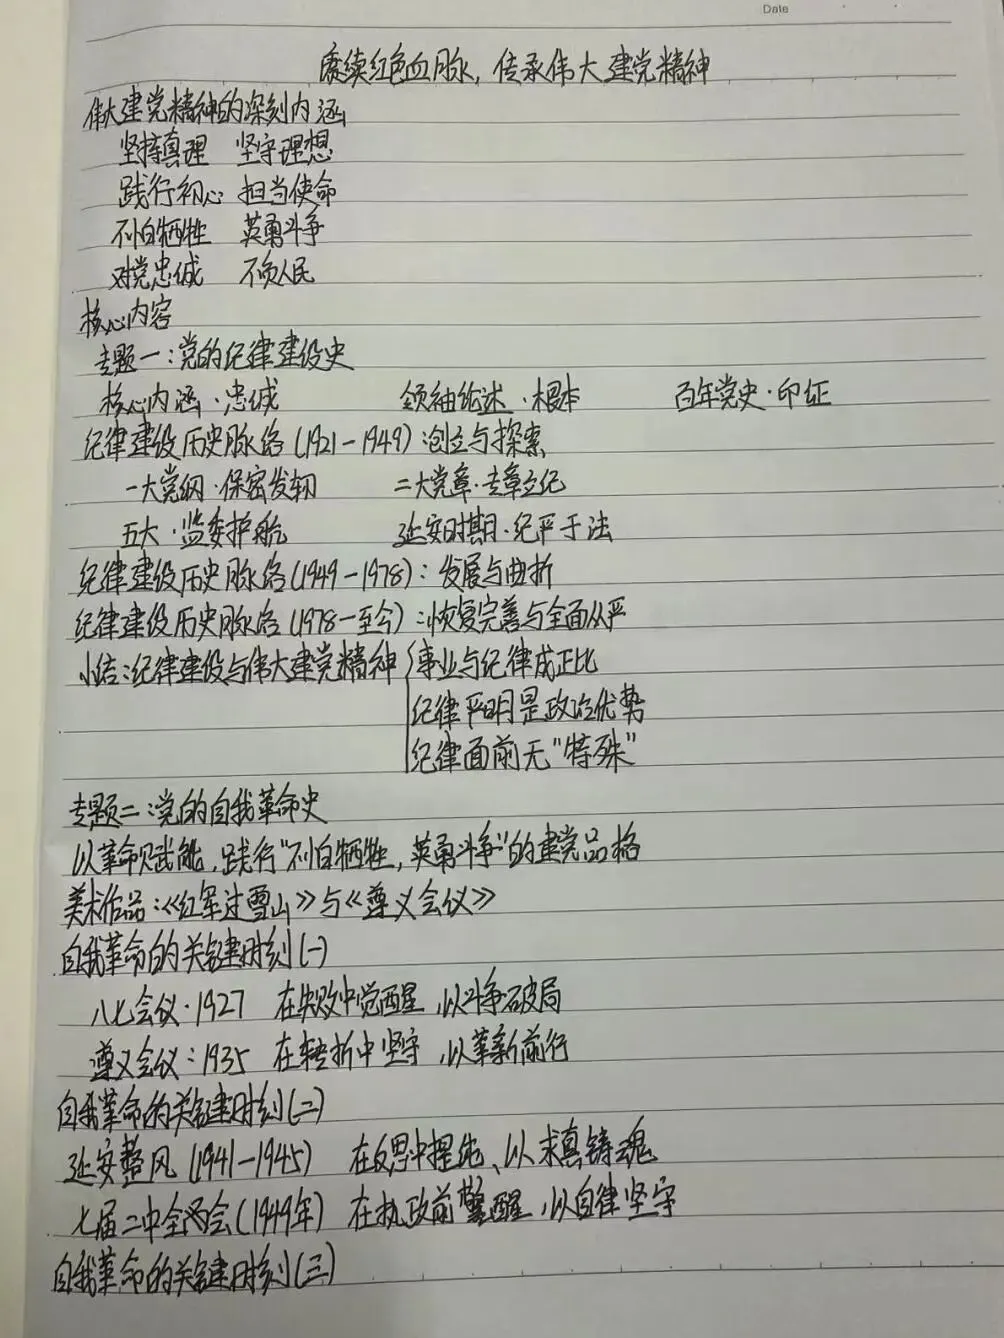 Date
赓续红色血脉，传承伟大建党精神
伟大建党精神的深刻内涵
坚持真理 坚守理想
践行初心 担当使命
不怕牺牲 英勇斗争
对党忠诚 不负人民
核心内容
专题一：党的纪律建设史
核心内涵·忠诚 领袖论述·根本 百年党史·印证
纪律建设历史脉络(1921-1949)：创立与探索
一大党纲·保密发轫 二大党章·专章立纪
五大·监委护航 延安时期·纪严于法
纪律建设历史脉络(1949-1978)：发展与曲折
纪律建设历史脉络(1978-至今)：恢复完善与全面从严
小结：纪律建设与伟大建党精神 事业与纪律成正比
纪律严明是政治优势
纪律面前无"特殊"
专题二：党的自我革命史
以革命赋能，践行"不怕牺牲，英勇斗争"的建党品格
美术作品：《红军过雪山》与《遵义会议》
自我革命的关键时刻(一)
八七会议·1927 在失败中觉醒，以斗争破局
遵义会议：1935 在转折中坚守，以革新前行
自我革命的关键时刻(二)
延安整风(1941-1945) 在反思中提纯、以求真铸魂
七届二中全会(1949年) 在执政前警醒，以自律坚守
自我革命的关键时刻(三)